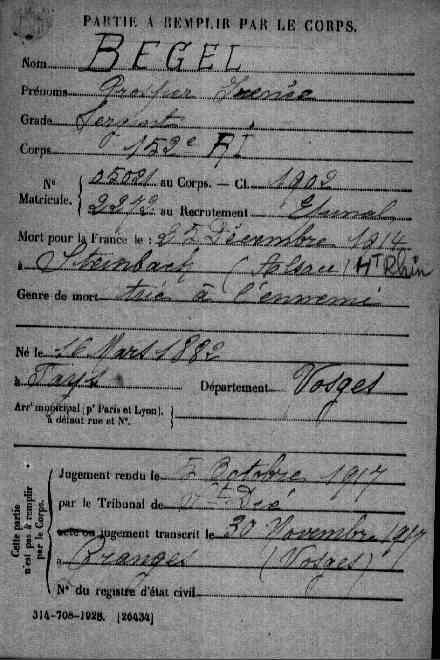 PARTIE À REMPLIR PAR LE CORPS.
Nom BEGEL
Prénoms Prosper Irénée
Grade Sergent
Corps 152e RI
N° Matricule. { 05021 au Corps. — Cl. 1902
2272 au Recrutement Epinal
Mort pour la France le : 25 Décembre 1914
à Steinbach (Alsace) Ht Rhin
Genre de mort tué à l'ennemi
Né le 16 Mars 1882
à Tays Département Vosges
Arrt municipal (pr Paris et Lyon), à défaut rue et N°. }
Cette partie n'est pas à remplir par le Corps.
Jugement rendu le 5 Octobre 1917
par le Tribunal de St Dié
acte ou jugement transcrit le 30 Novembre 1917
à Granges (Vosges)
N° du registre d'état civil
314-708-1928. [26434]